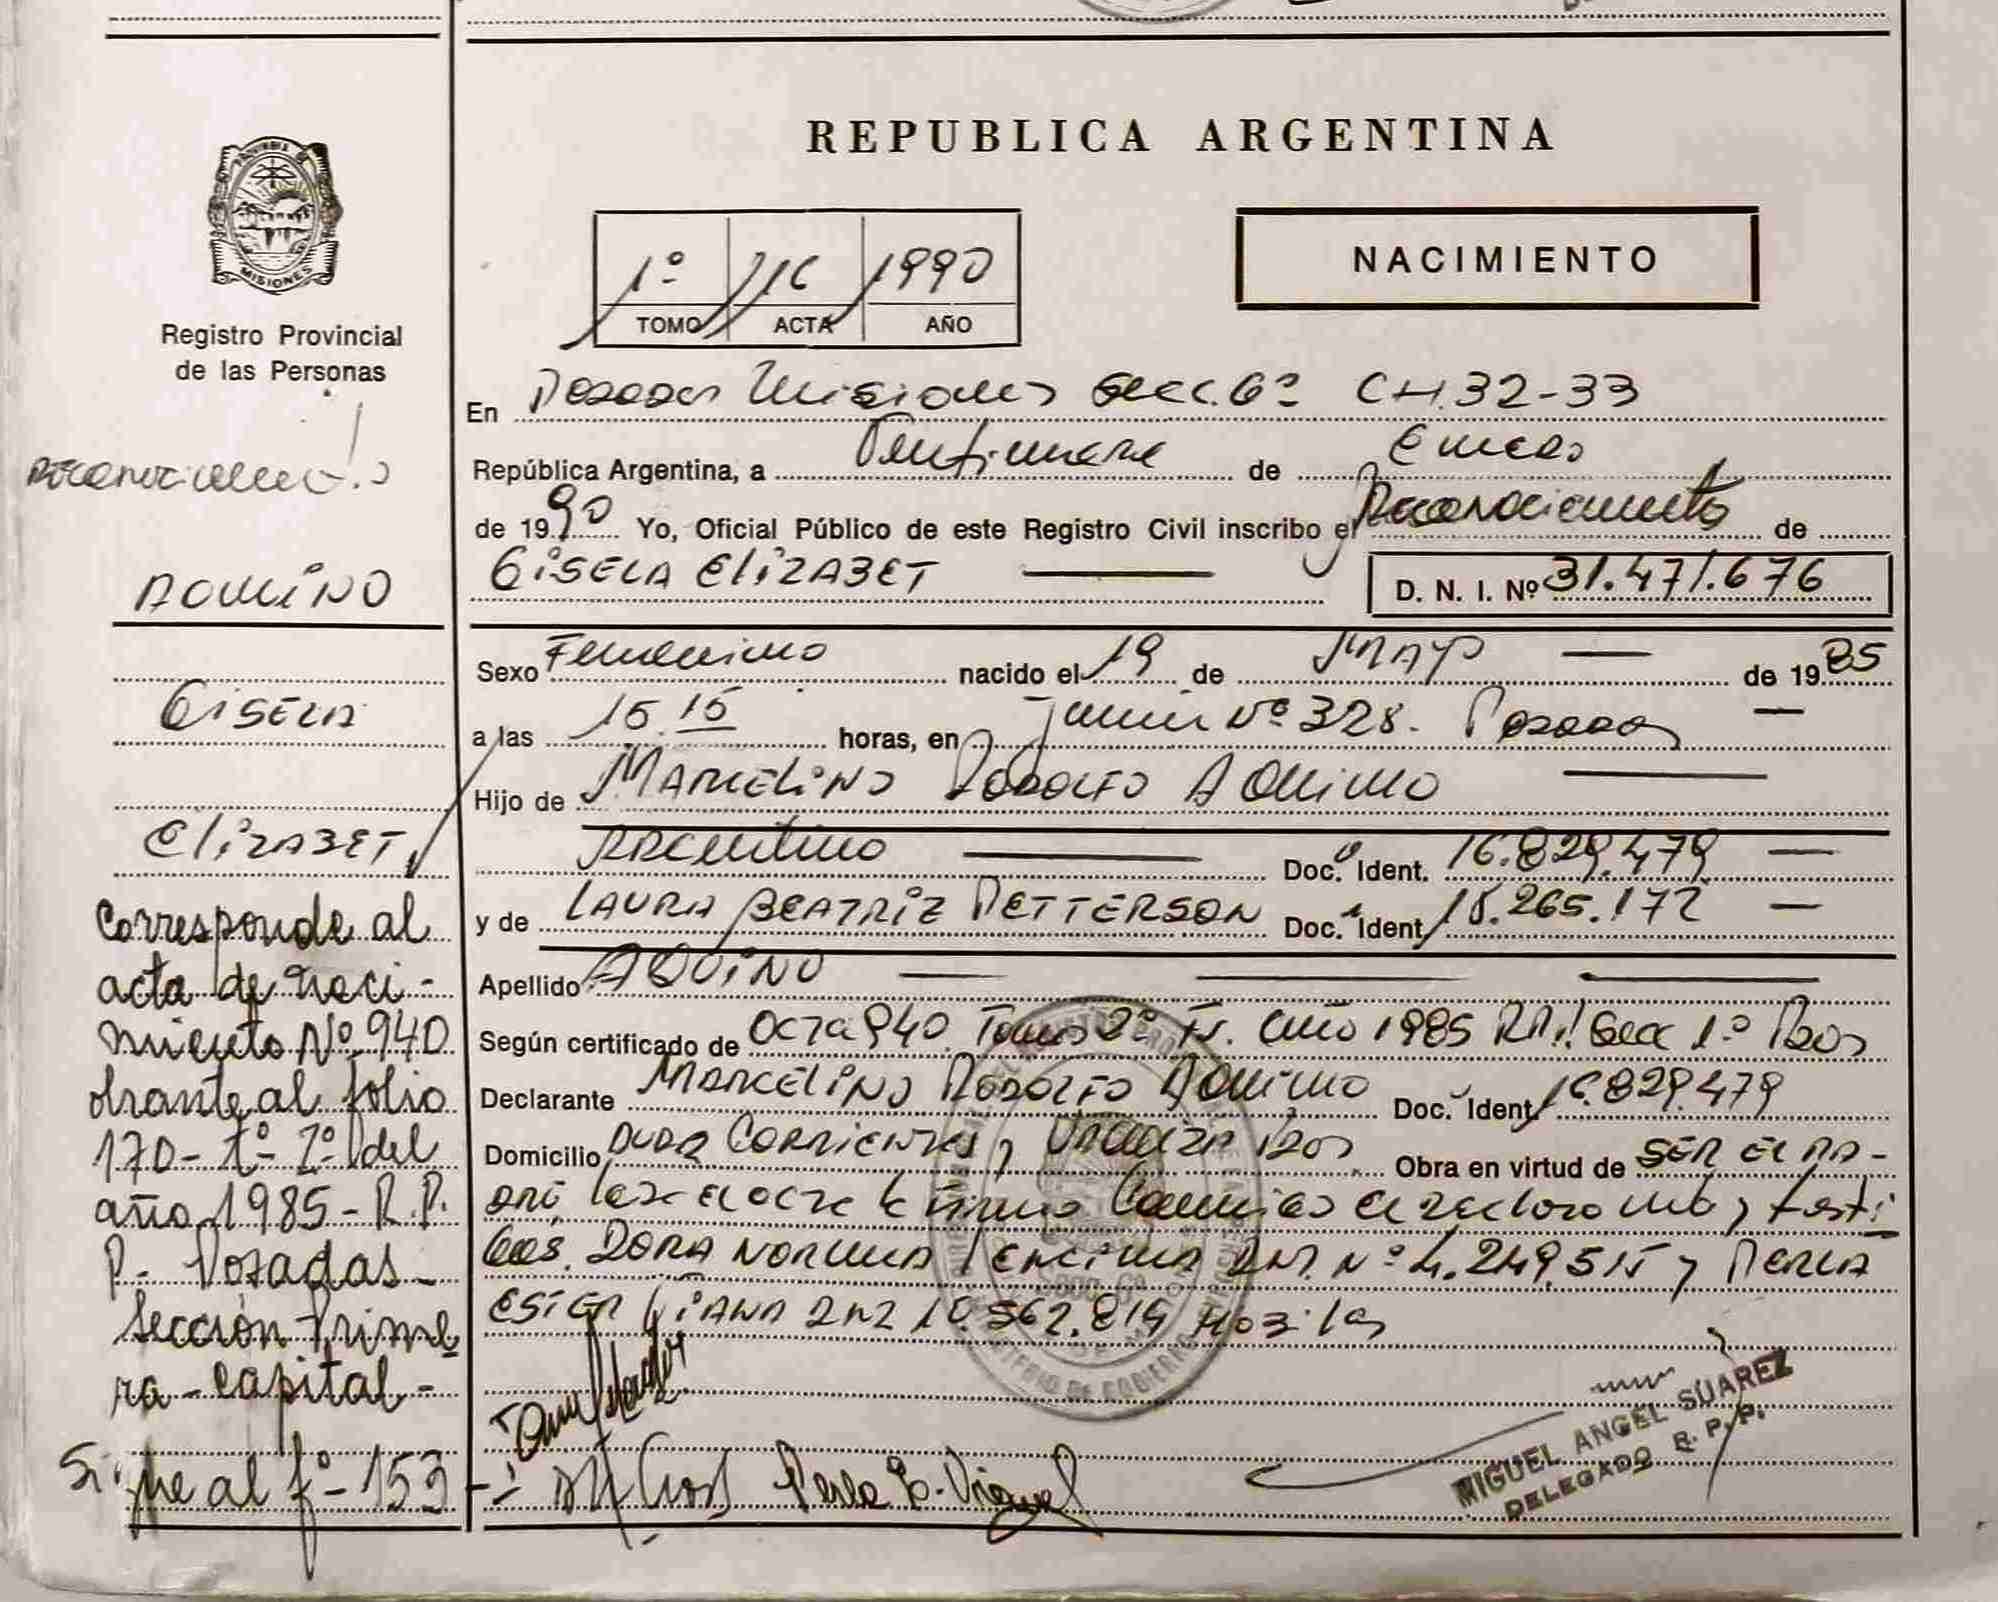 REPUBLICA ARGENTINA
NACIMIENTO
1º 716 1990
TOMO ACTA AÑO
PROVINCIA DE
MISIONES
Registro Provincial
de las Personas
Reconocimiento
AQUINO
GISELA
ELIZABET
Corresponde al
acta de naci-
miento Nº 940
obrante al folio
170 - tº - 2º del
año 1985 - R.P.
P - Posadas -
Sección Prime
ra - Capital -
Sigue al fº - 153 -
En Posadas Misiones Secc. 6º CH. 32-33
República Argentina, a Veintinueve de Enero
de 1990 Yo, Oficial Público de este Registro Civil inscribo el Reconocimiento de
GISELA ELIZABET D. N. I. Nº 31.471.676
Sexo Femenino nacido el 19 de MAYO de 1985
a las 15.15 horas, en Junín Nº 328. Posadas
Hijo de MARCELINO RODOLFO AQUINO
Argentino Doc. Ident. 16.829.479
y de LAURA BEATRIZ PETTERSON Doc. Ident. 18.265.172
Apellido AQUINO
Según certificado de Acta 940 Tomo 2º Año 1985 Secc 1º Pdas
Declarante MARCELINO RODOLFO AQUINO Doc. Ident. 16.829.479
Domicilio Avda CORRIENTES y Pdas Obra en virtud de SER EL PA-
dre el acta firma el declarante y testi
gos. DORA NORMA DNI. Nº 4.249.515 y PERLA
ESTER 10.562.814
Perla E.
MIGUEL ANGEL SUAREZ
DELEGADO R. P. P.